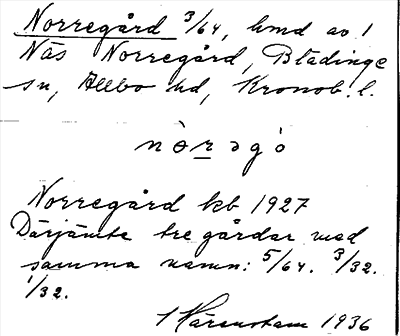 Norregård 3/64, hmd av 1
Näs Norregård, Blädinge
sn, Allbo hd, Kronob. l.
Norregård kb 1927
Därjämte tre gårdar med
samma namn: 5/64. 3/32.
1/32.
1936